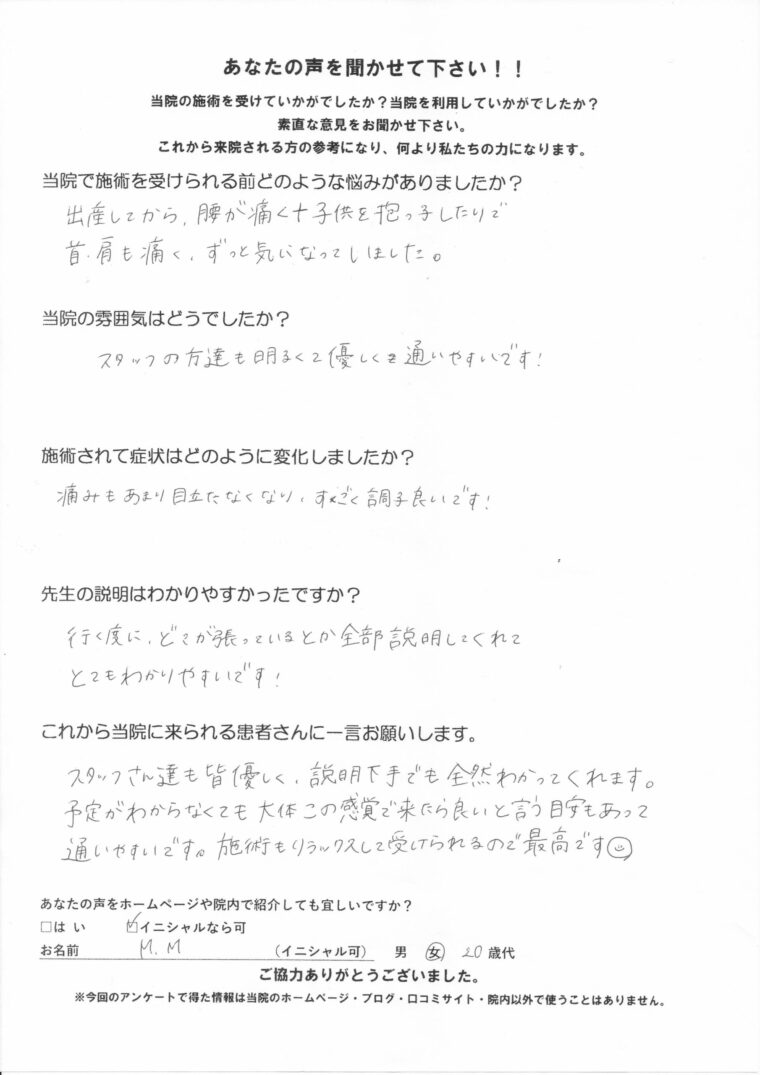 あなたの声を聞かせて下さい！！
当院の施術を受けていかがでしたか？当院を利用していかがでしたか？
素直な意見をお聞かせ下さい。
これから来院される方の参考になり、何より私たちの力になります。
当院で施術を受けられる前どのような悩みがありましたか？
出産してから、腰が痛く+子供を抱っ子したりで
首・肩も痛く、ずっと気になってしました。
当院の雰囲気はどうでしたか？
スタッフの方達も明るくて優しくを通いやすいです！
施術されて症状はどのように変化しましたか？
痛みもあまり目立たなくなり、すごく調子良いです！
先生の説明はわかりやすかったですか？
行く度に、どこが張っているとか全部説明してくれて
とてもわかりやすいです！
これから当院に来られる患者さんに一言お願いします。
スタッフさん達も皆優しく、説明下手でも全然わかってくれます。
予定がわからなくても大体この感覚で来たら良いと言う目安もあって
通いやすいです。施術もリラックスして受けられるので最高です☺
あなたの声をホームページや院内で紹介しても宜しいですか？
□はい ☑イニシャルなら可
お名前 M.M (イニシャル可) 男 女 20歳代
ご協力ありがとうございました。
※今回のアンケートで得た情報は当院のホームページ・ブログ・口コミサイト・院内以外で使うことはありません。